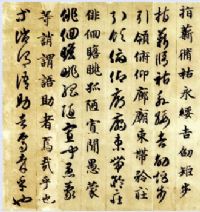 指薪脩祜永綏吉劭矩步
指薪脩祜永綏吉劭矩步
引領俯仰廊廟束帶矜莊
引領俯仰廊廟束帶矜莊
俳佪瞻眺孤陋寡聞愚蒙
俳佪瞻眺孤陋寡聞愚蒙
等誚謂語助者焉哉乎也
等誚謂語助者焉哉乎也